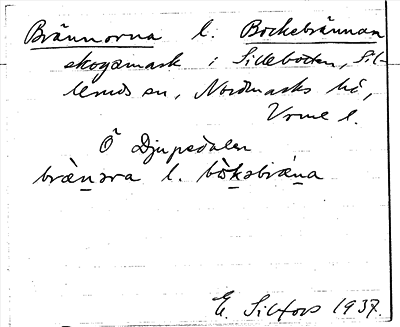 Brännorna l. Bockebrännan
skogsmark i Sillebotten, Sil-
leruds sn, Nordmarks hd,
Vrml l.
Ö Djupedalen
bræ̀nəra l. bòkəbræ̀na
E. Silfors 1937.